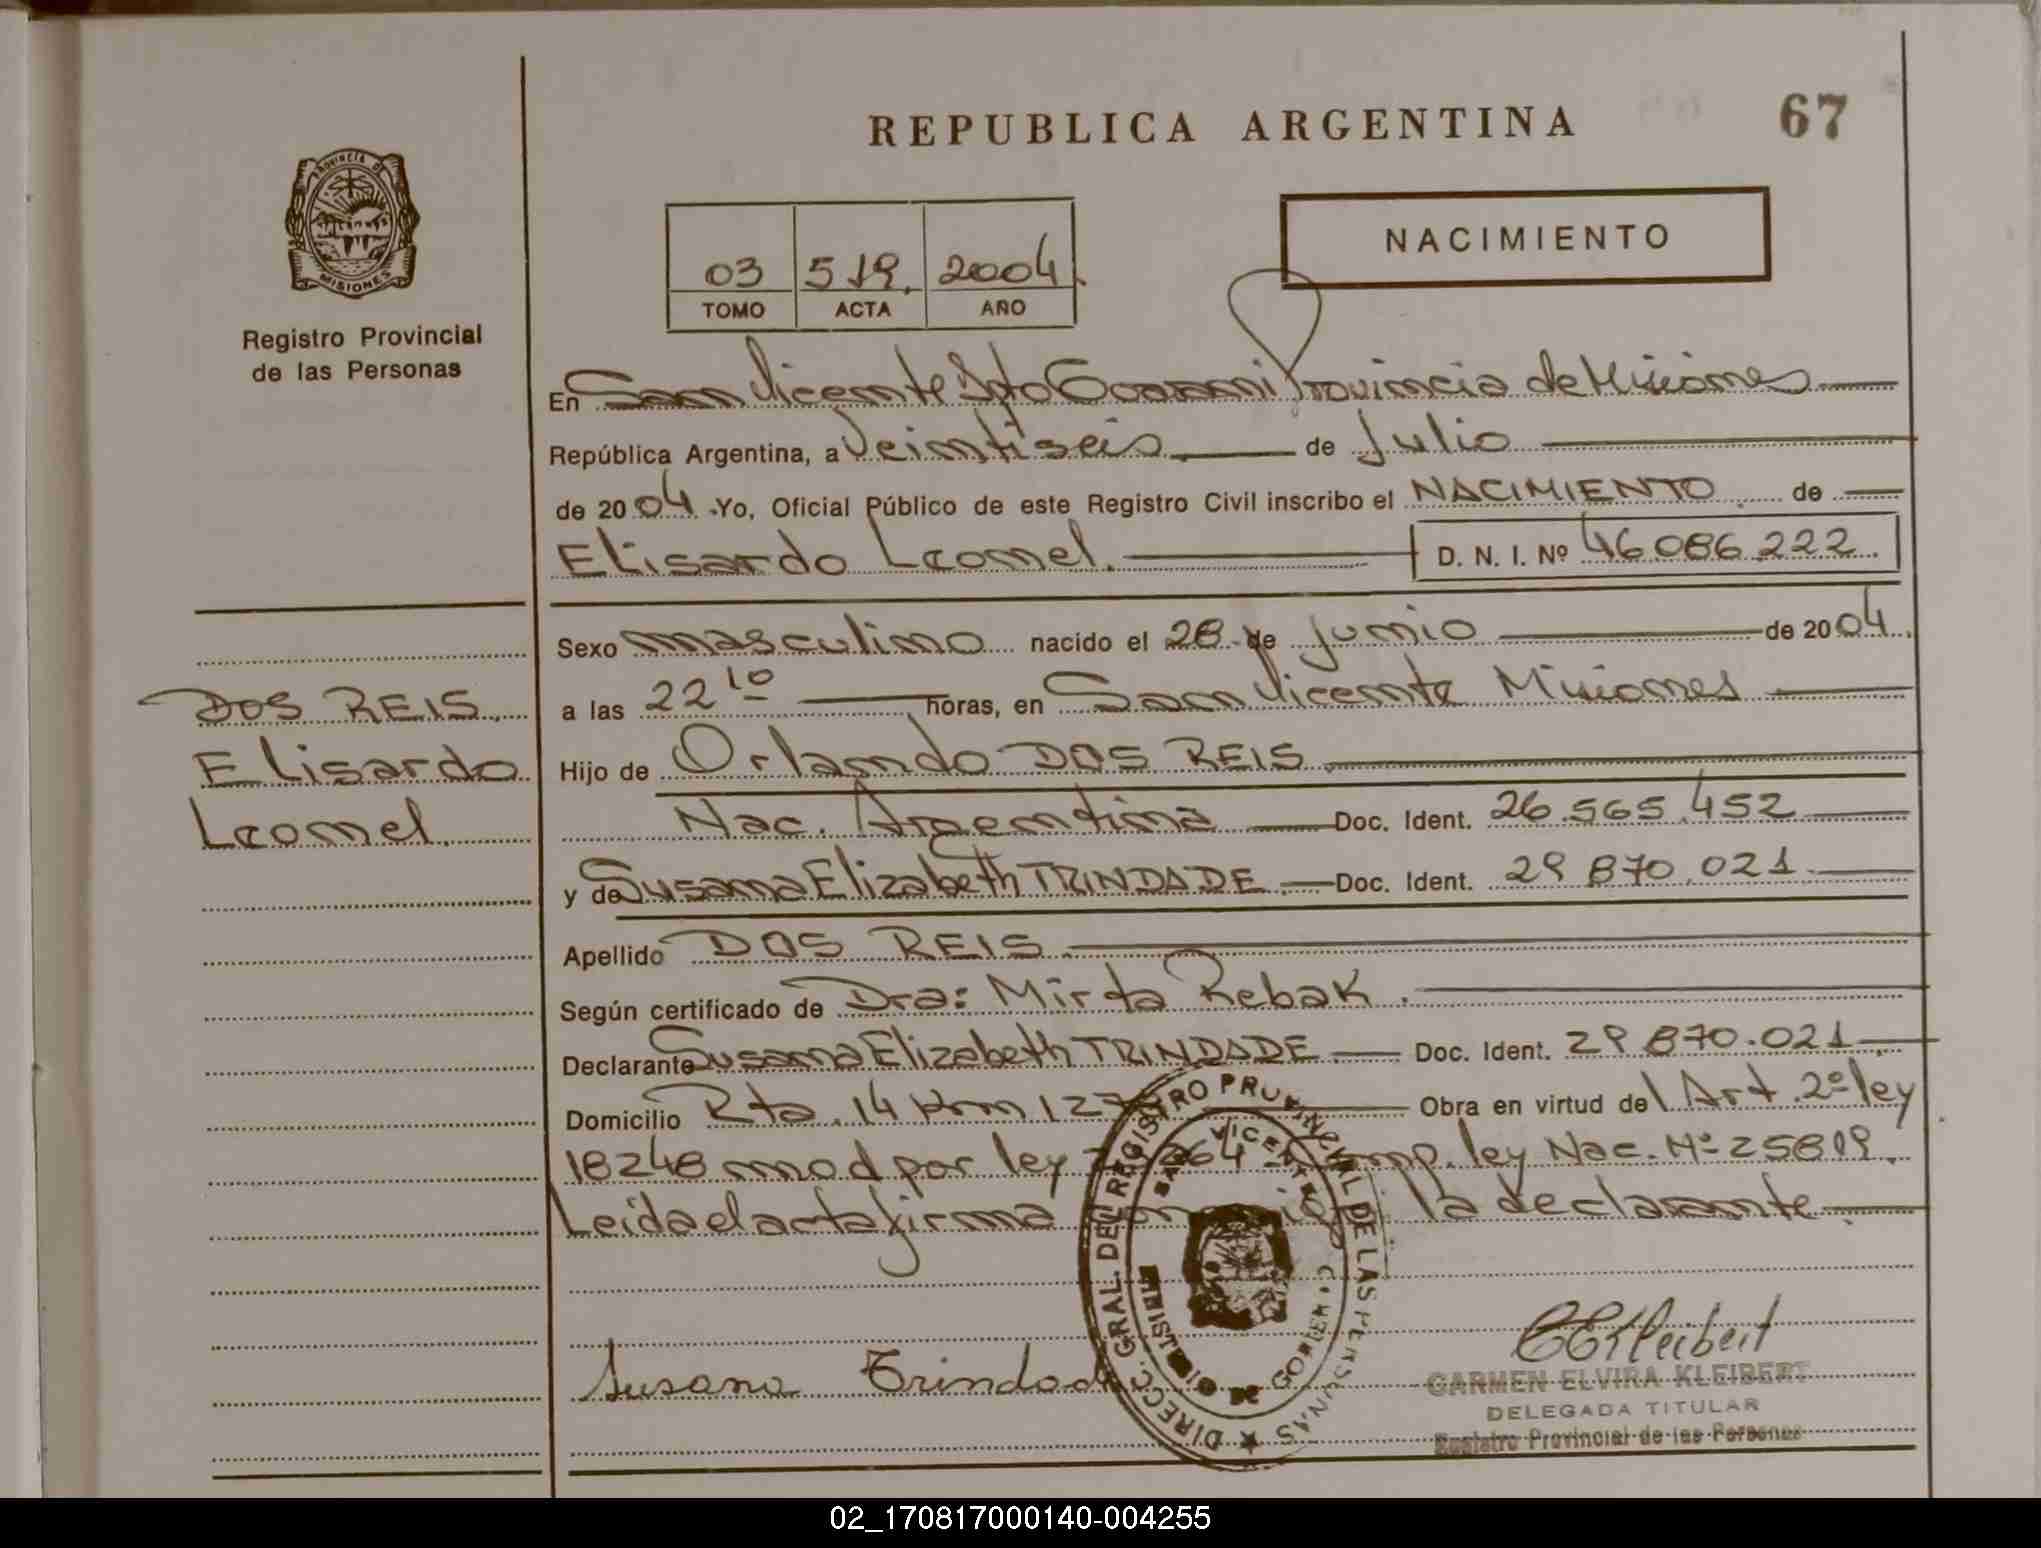 REPUBLICA ARGENTINA
67
PROVINCIA DE
MISIONES
Registro Provincial
de las Personas
03 519. 2004.
TOMO ACTA AÑO
NACIMIENTO
En San Vicente Dto Guarani Provincia de Misiones
República Argentina, a Veintiseis de Julio
de 2004 .Yo, Oficial Público de este Registro Civil inscribo el NACIMIENTO de
Elisardo Leonel. D. N. I. Nº 46 086.222.
Sexo masculino nacido el 28 de junio de 2004.
DOS REIS
a las 22 10 horas, en San Vicente Misiones
Elisardo
Hijo de Orlando DOS REIS.
Leonel.
Nac. Argentina Doc. Ident. 26.565.452
y de Susana Elizabeth TRINDADE. Doc. Ident. 29 870.021.
Apellido DOS REIS.
Según certificado de Dra: Mirta Rebak.
Declarante Susana Elizabeth TRINDADE. Doc. Ident. 29 870.021.
Domicilio Rta. 14 Km 127 Obra en virtud del Art. 2º ley
18248 mod por ley 264 comp. ley Nac. Nº 25819.
Leida el acta firma la declarante.
Susana Trindad
DIRECC. GRAL. DEL REGISTRO PROVINCIAL DE LAS PERSONAS
SAN VICENTE
MINISTERIO DE GOBIERNO
CEKleibert
CARMEN ELVIRA KLEIBERT
DELEGADA TITULAR
Registro Provincial de las Personas
02_170817000140-004255